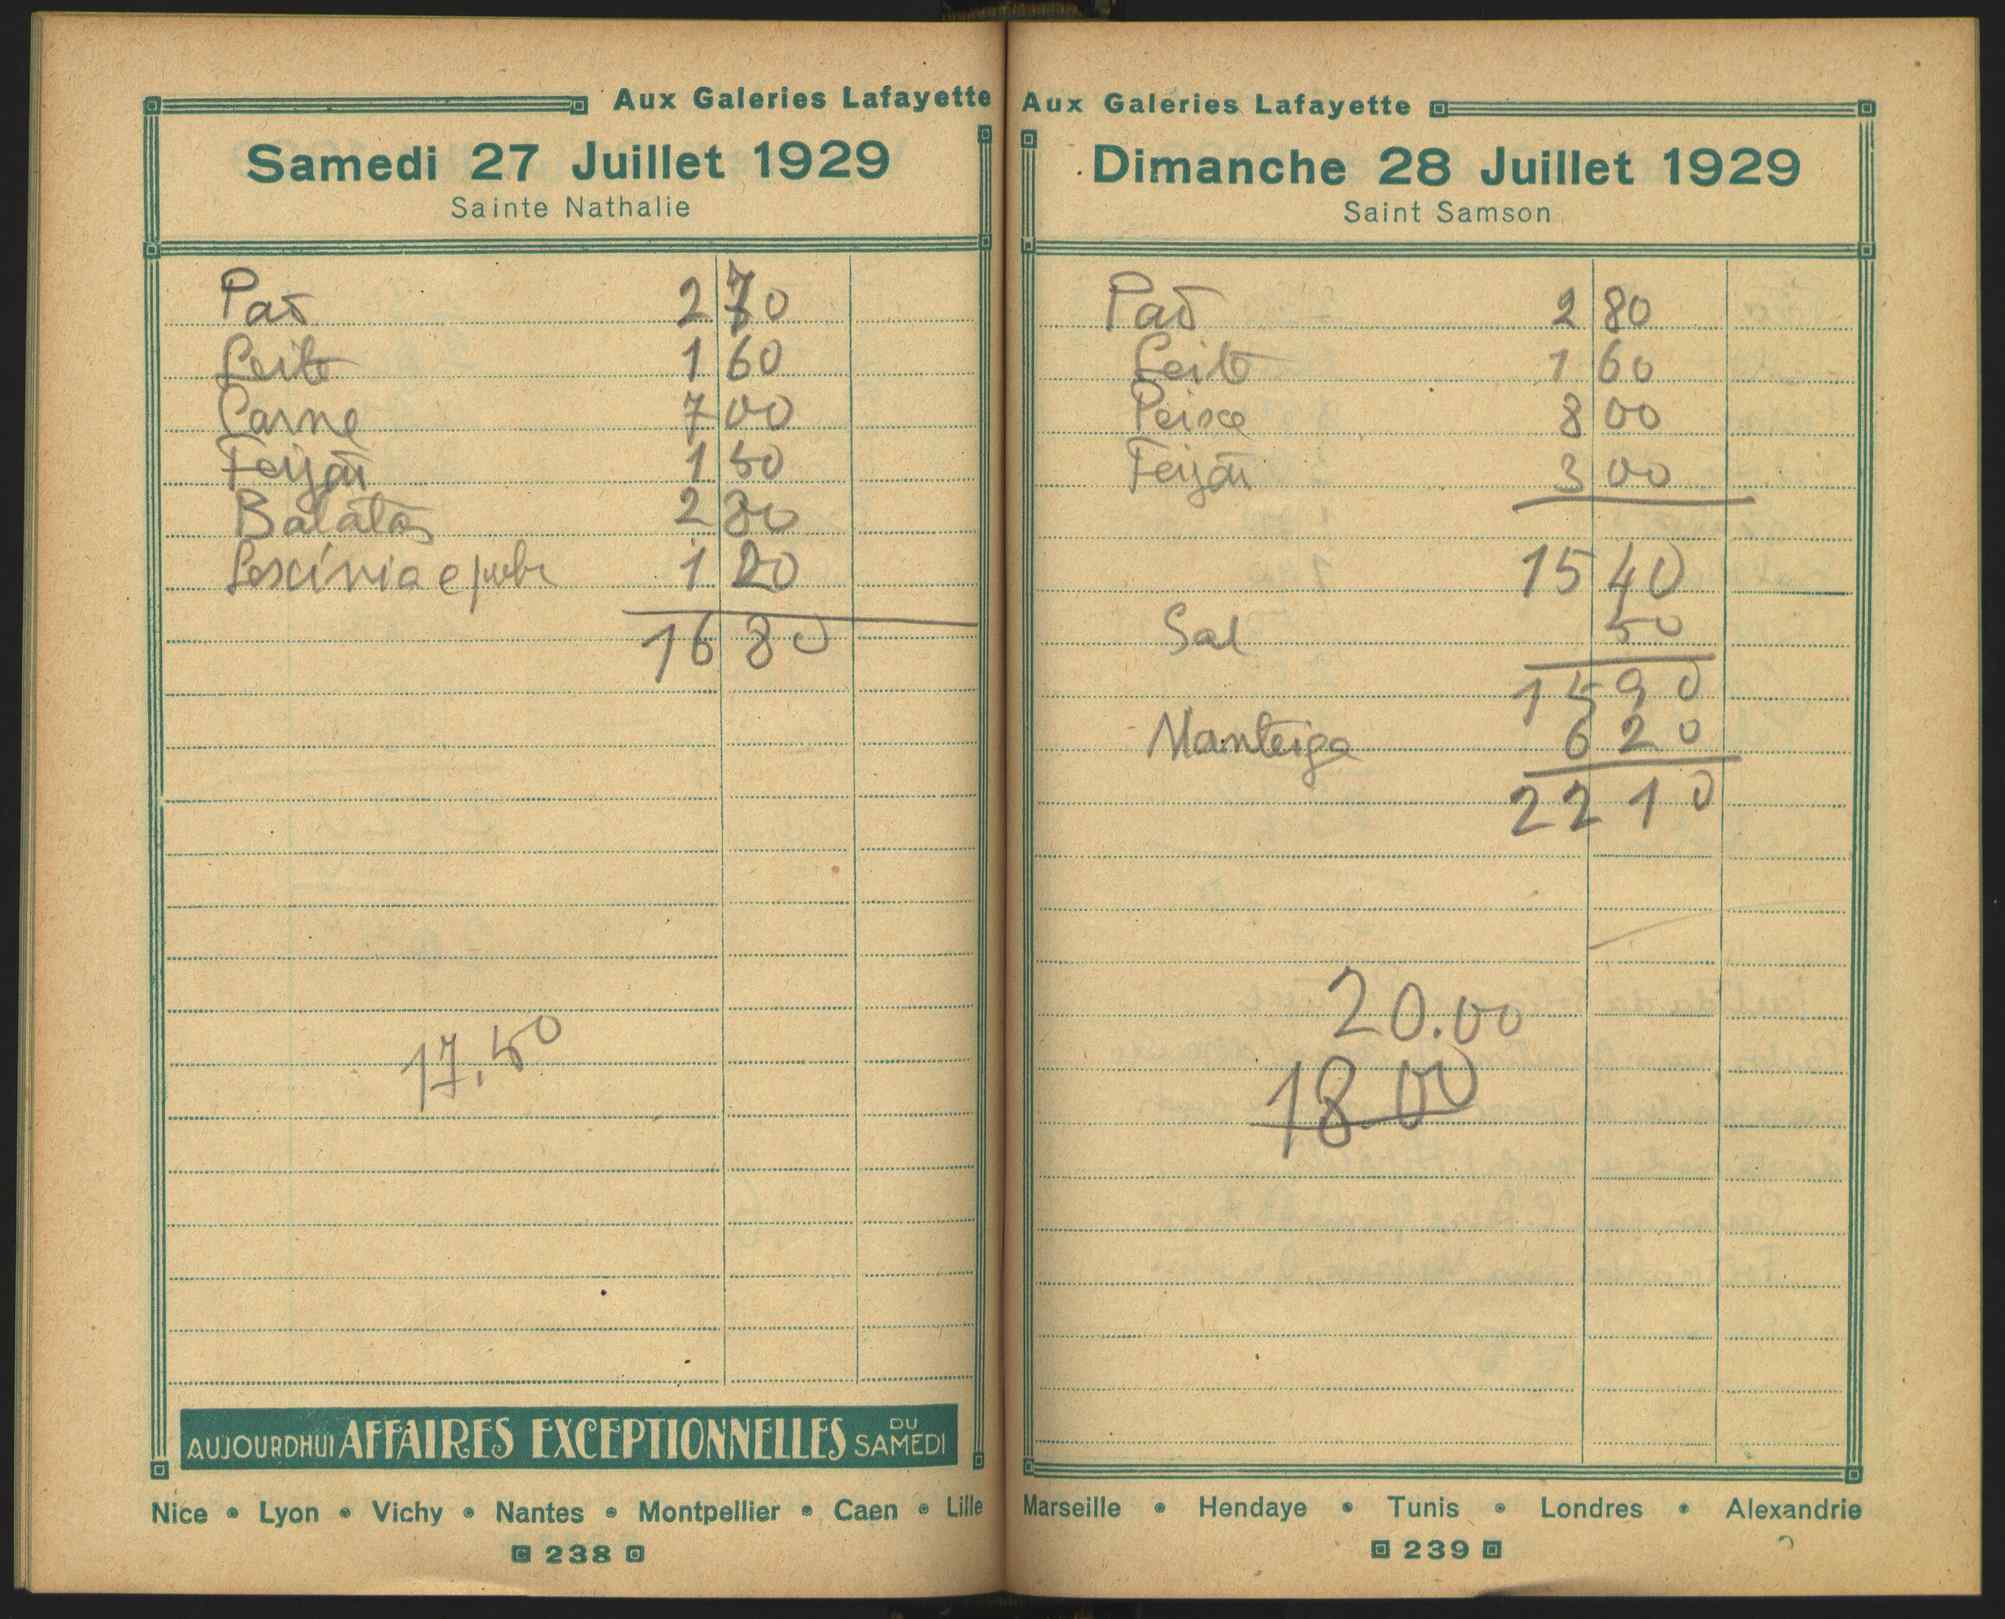 Aux Galeries Lafayette
Samedi 27 Juillet 1929
Sainte Nathalie
Pão 2 70
Leite 1 60
Carne 7 00
Feijão 1 50
Batatas 2 80
Lexívia e 1 20
16 80
17,50
AUJOURDHUI AFFAIRES EXCEPTIONNELLES DU SAMEDI
Nice • Lyon • Vichy • Nantes • Montpellier • Caen • Lille
238
Aux Galeries Lafayette
Dimanche 28 Juillet 1929
Saint Samson
Pão 2 80
Leite 1 60
Peixe 8 00
Feijão 3 00
15 40
Sal 50
15 90
Manteiga 6 20
22 10
20.00
18.00
Marseille • Hendaye • Tunis • Londres • Alexandrie
239